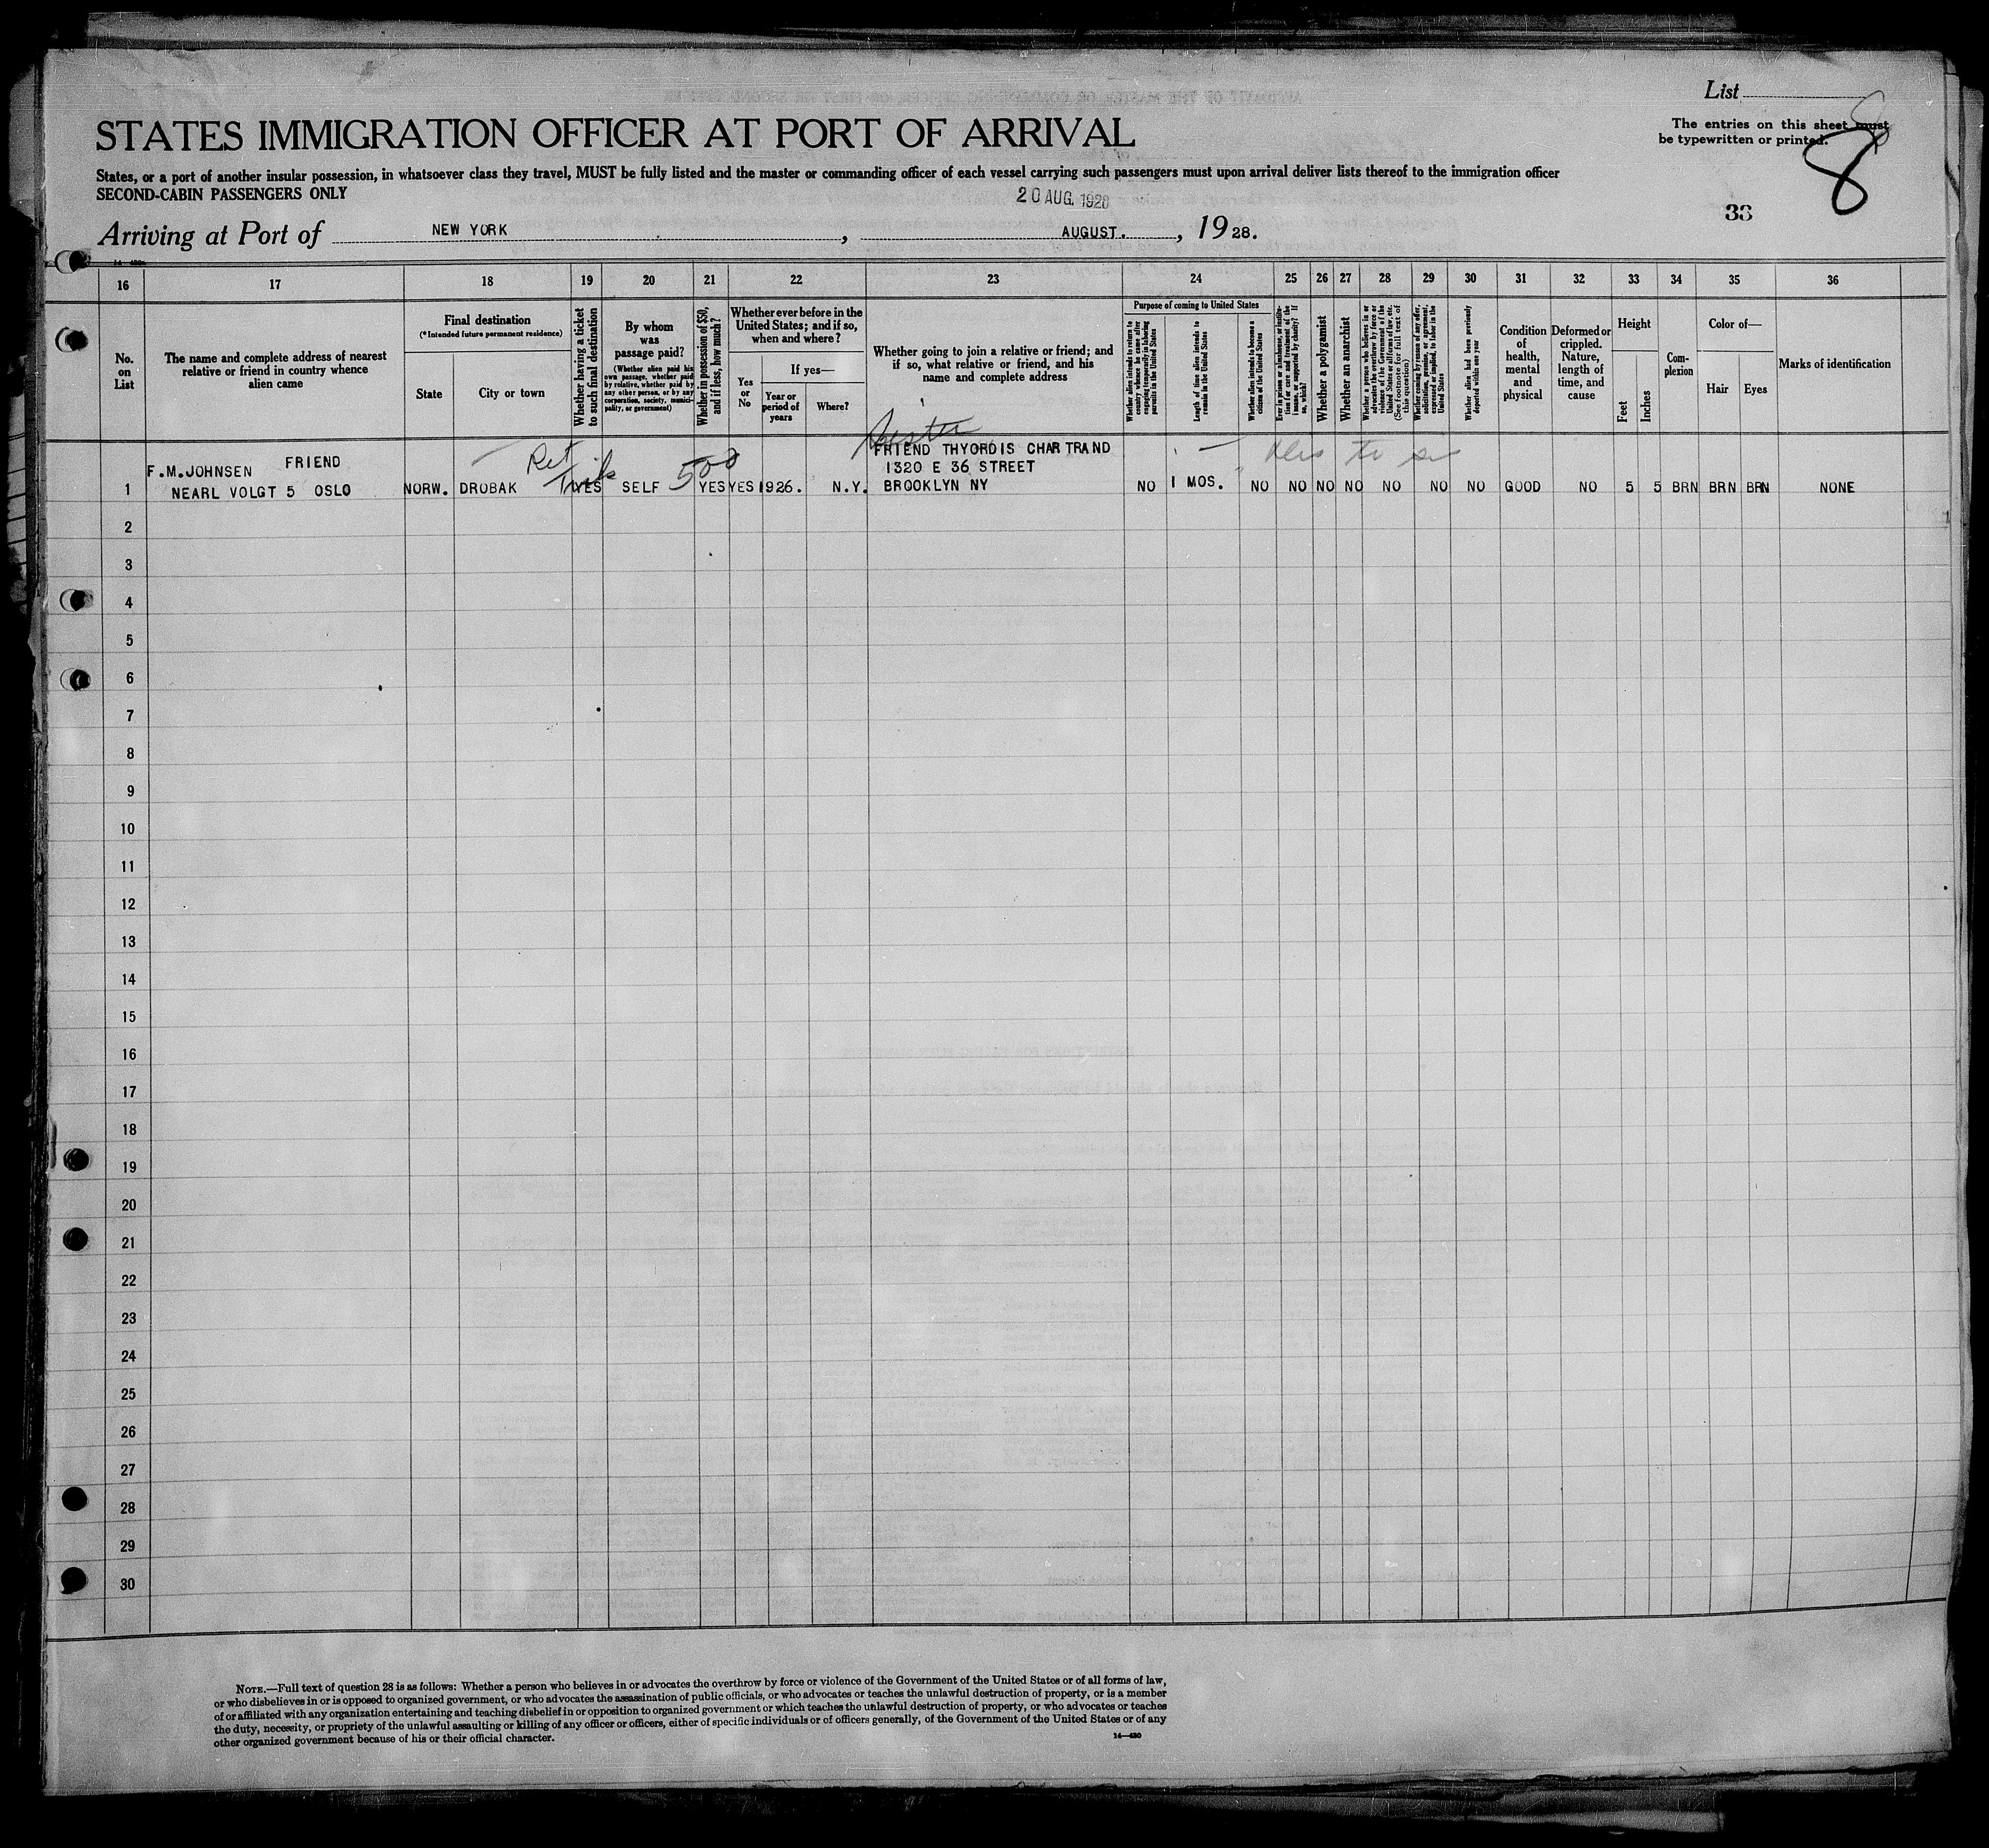 List
The entries on this sheet must
be typewritten or printed.
8
STATES IMMIGRATION OFFICER AT PORT OF ARRIVAL
States, or a port of another insular possession, in whatsoever class they travel, MUST be fully listed and the master or commanding officer of each vessel carrying such passengers must upon arrival deliver lists thereof to the immigration officer
SECOND-CABIN PASSENGERS ONLY
20 AUG. 1928
33
Arriving at Port of NEW YORK, AUGUST., 1928.
16 17 18 19 20 21 22 23 24 25 26 27 28 29 30 31 32 33 34 35 36
No. on List
The name and complete address of nearest relative or friend in country whence alien came
Final destination
(*Intended future permanent residence)
State
City or town
Whether having a ticket to such final destination
By whom was passage paid?
(Whether alien paid his own passage, whether paid by relative, whether paid by any other person, or by any corporation, society, municipality, or government)
Whether in possession of $50, and if less, how much?
Whether ever before in the United States; and if so, when and where?
Yes or No
If yes—
Year or period of years
Where?
Whether going to join a relative or friend; and if so, what relative or friend, and his name and complete address
Purpose of coming to United States
Whether alien intends to return to country whence he came after engaging temporarily in laboring pursuits in the United States
Length of time alien intends to remain in the United States
Whether alien intends to become a citizen of the United States
Ever in prison or almshouse, or institution for care and treatment of the insane, or supported by charity? If so, which?
Whether a polygamist
Whether an anarchist
Whether a person who believes in or advocates the overthrow by force or violence of the Government of the United States or all forms of law, etc. (See footnote for full text of this question)
Whether coming by reason of any offer, solicitation, promise, or agreement, expressed or implied, to labor in the United States
Whether alien had been previously deported within one year
Condition of health, mental and physical
Deformed or crippled. Nature, length of time, and cause
Height
Feet
Inches
Com-plexion
Color of—
Hair
Eyes
Marks of identification
Sister
Ret
500
F.M.JOHNSEN FRIEND
FRIEND THYORDIS CHARTRAND
1320 E 36 STREET
1 NEARL VOLGT 5 OSLO NORW. DROBAK YES SELF YES YES 1926. N.Y. BROOKLYN NY NO 1 MOS. NO NO NO NO NO NO NO GOOD NO 5 5 BRN BRN BRN NONE
2
3
4
5
6
7
8
9
10
11
12
13
14
15
16
17
18
19
20
21
22
23
24
25
26
27
28
29
30
NOTE.—Full text of question 28 is as follows: Whether a person who believes in or advocates the overthrow by force or violence of the Government of the United States or of all forms of law,
or who disbelieves in or is opposed to organized government, or who advocates the assassination of public officials, or who advocates or teaches the unlawful destruction of property, or is a member
of or affiliated with any organization entertaining and teaching disbelief in or opposition to organized government or which teaches the unlawful destruction of property, or who advocates or teaches
the duty, necessity, or propriety of the unlawful assaulting or killing of any officer or officers, either of specific individuals or of officers generally, of the Government of the United States or of any
other organized government because of his or their official character.
14—430